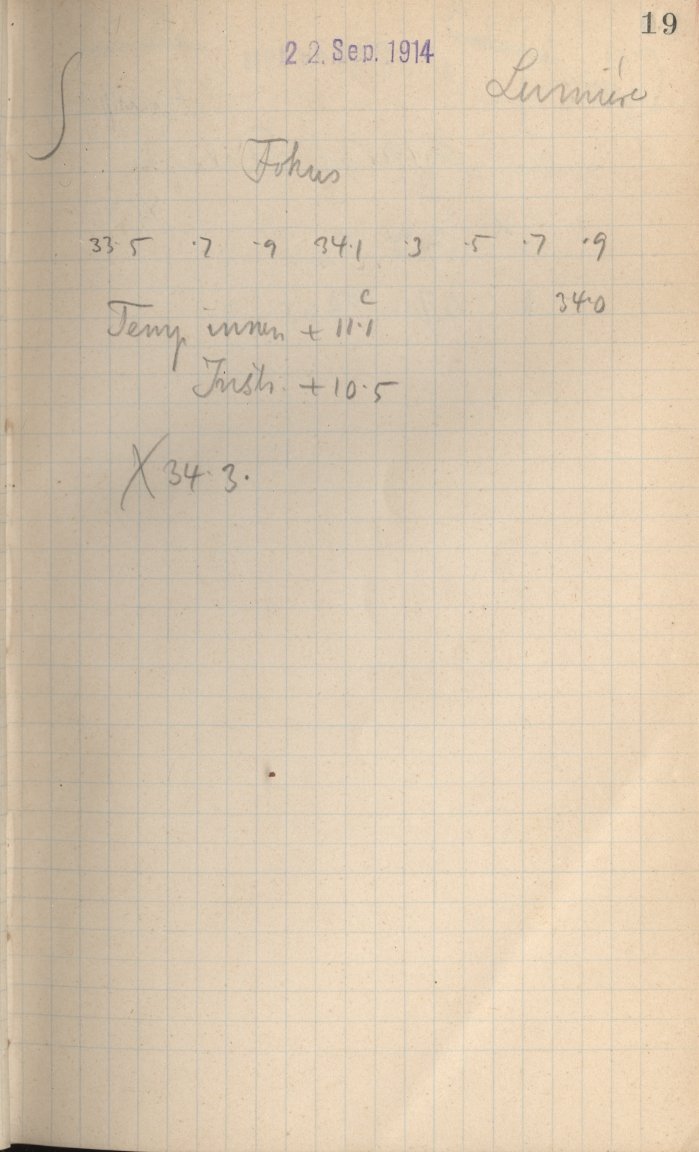 19
22. Sep. 1914
Lumière
Fokus
33.5 .7 .9 34.1 .3 .5 .7 .9
34.0
Temp innen + 11.1 C
Instr. + 10.5
X 34.3.